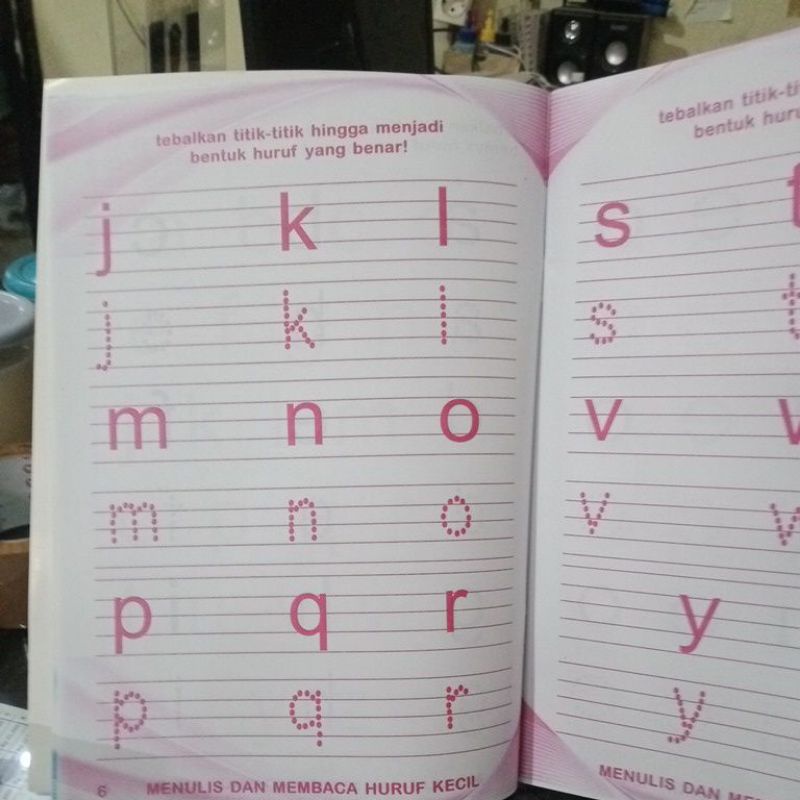 tebalkan titik-titik hingga menjadi
bentuk huruf yang benar!
j k l
j k l
m n o
m n o
p q r
p q r
6 MENULIS DAN MEMBACA HURUF KECIL
tebalkan
bentuk
s t
s t
v
v
y
y
MENULIS DAN